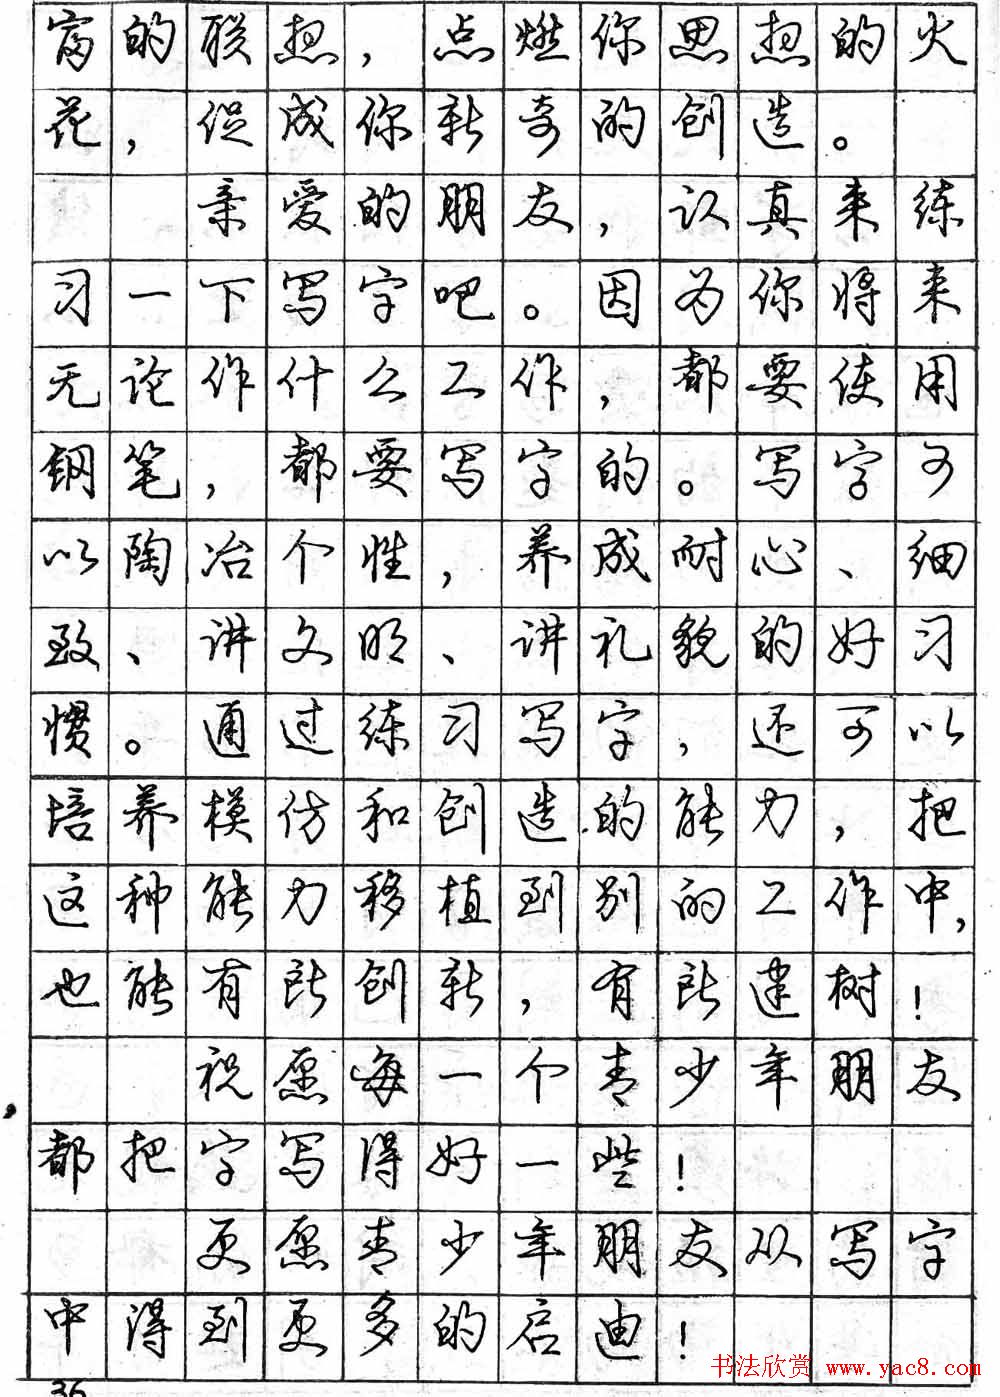 富的联想，点燃你思想的火
花，促成你新奇的创造。
亲爱的朋友，认真来练
习一下写字吧。因为你将来
无论作什么工作，都要使用
钢笔，都要写字的。写字可
以陶冶个性，养成耐心、细
致、讲文明、讲礼貌的好习
惯。通过练习写字，还可以
培养模仿和创造的能力，把
这种能力移植到别的工作中，
也能有所创新，有所建树！
祝愿每一个青少年朋友
都把字写得好一些！
更愿青少年朋友从写字
中得到更多的启迪！
书法欣赏 www.yac8.com
36